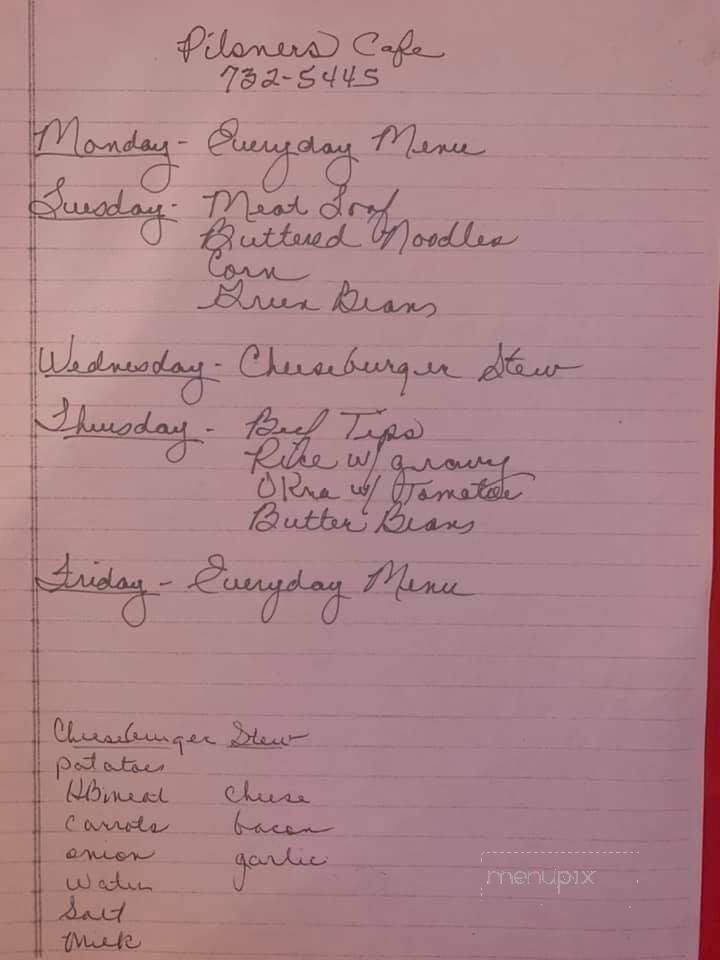 Pilsners Cafe
732-5445
Monday - Everyday Menu
Tuesday - Meat Loaf
Buttered Noodles
Corn
Green Beans
Wednesday - Cheeseburger Stew
Thursday - Beef Tips
Rice w/ gravy
OKra w/ Tomatoe
Butter Beans
Friday - Everyday Menu
Cheeseburger Stew
potatoes
HBmeat cheese
carrots bacon
onion garlic
Water
Salt
Milk
menupix